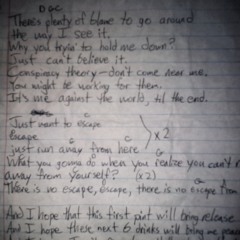 D G C
There's plenty of blame to go around
the way I see it.
Why you tryin' to hold me down?
Just can't believe it.
Conspiracy theory - don't come near me.
You might be working for them.
It's me against the world, til the end.
Just want to escape
escape
just run away from here
x 2
What you gonna do when you realize you can't r
away from yourself? (x2)
There is no escape, escape, there is no escape from
And I hope that this first pint will bring release
And I hope these next 6 drinks will bring me peace